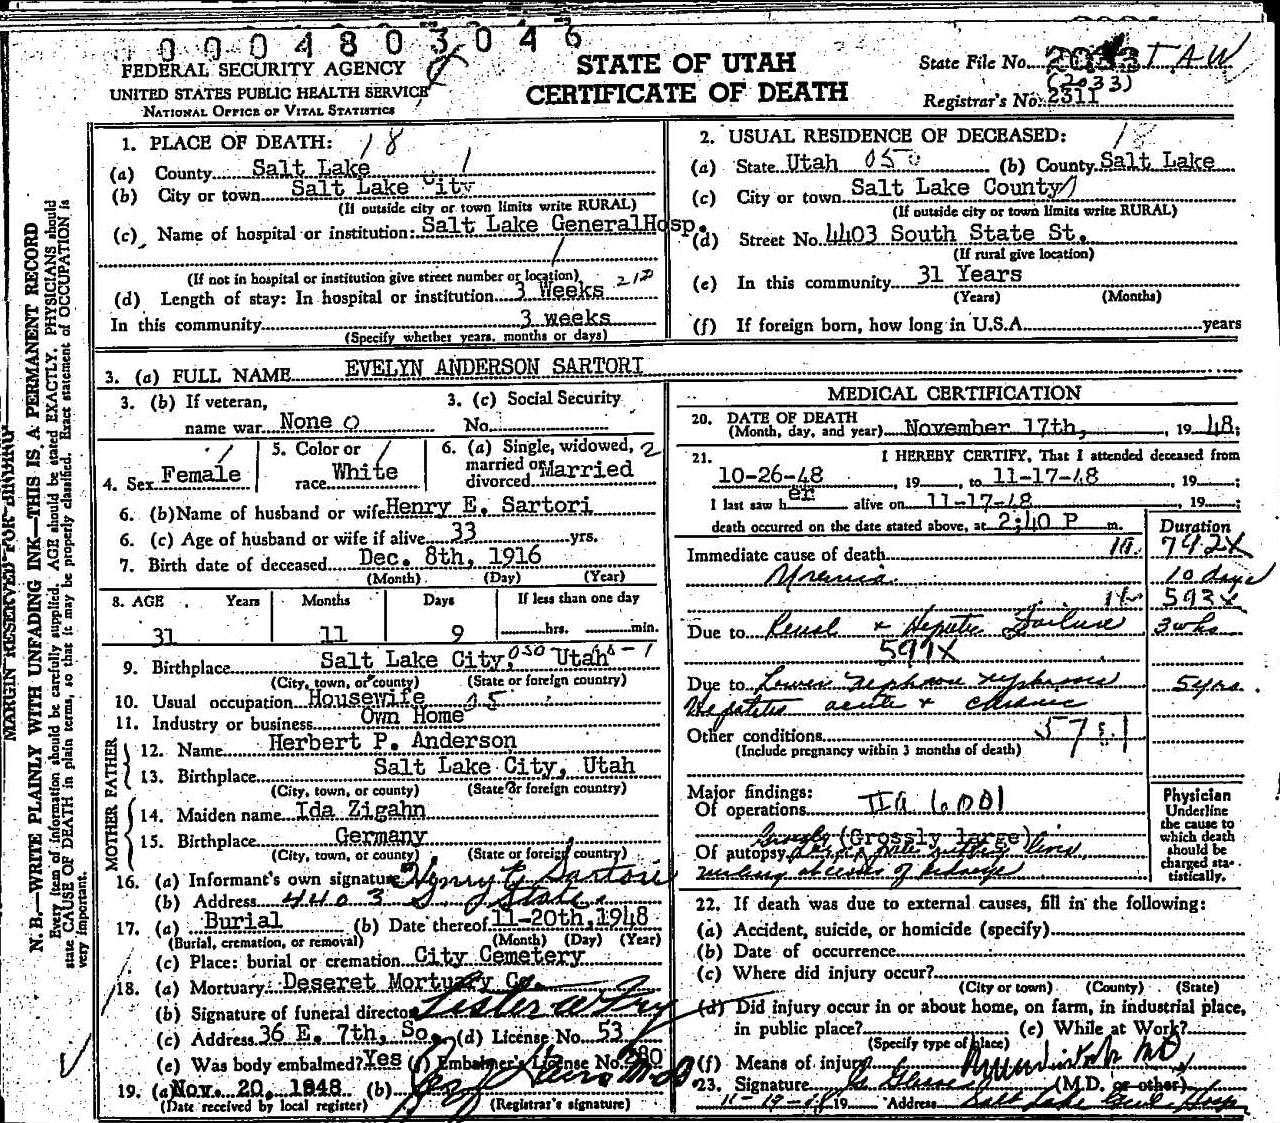 0004803046
FEDERAL SECURITY AGENCY
UNITED STATES PUBLIC HEALTH SERVICE
NATIONAL OFFICE OF VITAL STATISTICS
STATE OF UTAH
CERTIFICATE OF DEATH
State File No. TAW
(2033)
Registrar's No. 2311
MARGIN RESERVED FOR BINDING
N. B.—WRITE PLAINLY WITH UNFADING INK—THIS IS A PERMANENT RECORD
Every item of information should be carefully supplied. AGE should be stated EXACTLY. PHYSICIANS should
state CAUSE OF DEATH in plain terms, so that it may be properly classified. Exact statement of OCCUPATION is
very important.
1. PLACE OF DEATH: 18
(a) County Salt Lake
(b) City or town Salt Lake City
(If outside city or town limits write RURAL)
(c) Name of hospital or institution: Salt Lake General Hosp.
(If not in hospital or institution give street number or location)
(d) Length of stay: In hospital or institution 3 Weeks
In this community 3 weeks
(Specify whether years, months or days)
2. USUAL RESIDENCE OF DECEASED: 18
(a) State Utah 050 (b) County Salt Lake
(c) City or town Salt Lake County
(If outside city or town limits write RURAL)
(d) Street No. 4403 South State St.
(If rural give location)
(e) In this community 31 Years
(Years) (Months)
(f) If foreign born, how long in U.S.A. years
3. (a) FULL NAME EVELYN ANDERSON SARTORI
3. (b) If veteran,
name war None 0
3. (c) Social Security
No.
4. Sex Female
5. Color or
race White
6. (a) Single, widowed, 2
married or
divorced Married
6. (b) Name of husband or wife Henry E. Sartori
6. (c) Age of husband or wife if alive 33 yrs.
7. Birth date of deceased Dec. 8th, 1916
(Month) (Day) (Year)
8. AGE Years Months Days If less than one day
31 11 9 hrs. min.
9. Birthplace Salt Lake City, 050 Utah
(City, town, or county) (State or foreign country)
10. Usual occupation Housewife
11. Industry or business Own Home
FATHER
12. Name Herbert P. Anderson
13. Birthplace Salt Lake City, Utah
(City, town, or county) (State or foreign country)
MOTHER
14. Maiden name Ida Zigahn
15. Birthplace Germany
(City, town, or county) (State or foreign country)
16. (a) Informant's own signature Henry E Sartori
(b) Address 4403 S State.
17. (a) Burial (b) Date thereof 11-20th, 1948
(Burial, cremation, or removal) (Month) (Day) (Year)
(c) Place: burial or cremation City Cemetery
18. (a) Mortuary Deseret Mortuary Co.
(b) Signature of funeral director Lester
(c) Address 36 E. 7th, So. (d) License No. 53
(e) Was body embalmed? Yes (f) Embalmer's License No.
19. (a) Nov. 20, 1848 (b)
(Date received by local register) (Registrar's signature)
MEDICAL CERTIFICATION
20. DATE OF DEATH
(Month, day, and year) November 17th, , 19 48;
21. I HEREBY CERTIFY, That I attended deceased from
10-26-48 , 19 , to 11-17-48 , 19 ;
I last saw her alive on 11-17-48 , 19 ;
death occurred on the date stated above, at 2:40 P m.
Duration
Immediate cause of death 792X
Uremia 10 days
593X
Due to Renal & Hepatic Failure 3 wks
599X
Due to Lower nephron nephrosis 5 yrs.
Hepatitis acute & chronic
Other conditions
(Include pregnancy within 3 months of death)
Major findings:
Of operations
(Grossly large)
Of autopsy
Physician
Underline
the cause to
which death
should be
charged sta-
tistically.
22. If death was due to external causes, fill in the following:
(a) Accident, suicide, or homicide (specify)
(b) Date of occurrence
(c) Where did injury occur?
(City or town) (County) (State)
(d) Did injury occur in or about home, on farm, in industrial place,
in public place? (e) While at Work?
(Specify type of place)
(f) Means of injury
23. Signature (M.D. or other)
11-19-48 19 Address Salt Lake Genl. Hosp